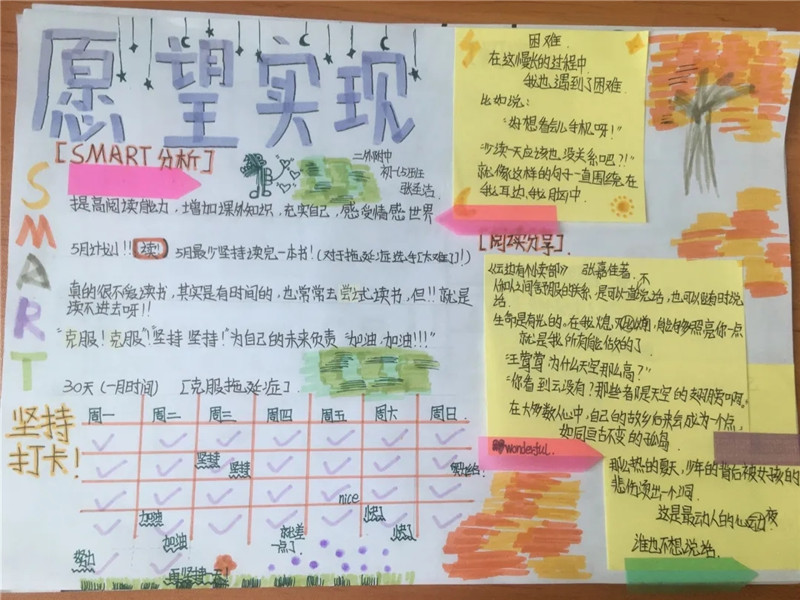 愿望实现
[SMART分析]
二外附中
初一(5)班
SMART
提高阅读能力，增加课外知识，充实自己，感受情感世界
5月计划!! 读! 5月最少坚持读完一本书!(对于拖延症选手[太难了]!)
真的很不爱读书，其实是有时间的，也常常去尝试读书，但!!就是
读不进去呀!!
"克服!克服"!"坚持 坚持!"为自己的未来负责 "加油，加油!!!"
30天(一月时间) [克服拖延症]
坚持
打卡!
周一 周二 周三 周四 周五 周六 周日
坚持
坚持
nice
加油
快了
加油
还差
一点了
快了
努力
再坚持一下!
困难
在这慢长的过程中
我也遇到了困难
比如说:
"好想看会儿手机呀!"
"少读一天应该也没关系吧?!"
就像这样的句子一直围绕在
我耳边，我脑中.
[阅读分享]
《云边有个小卖部》 张嘉佳著
生命是有光的。在我熄灭以前，能够照亮你一点
就是我所有能做的了
"王莺莺 为什么天空那么高?"
"你看到云没有?那些都是天空的翅膀啊。"
在大多数人心中，自己的故乡后来会成为一个点，
如同亘古不变的孤岛
wonderful
那么热的夏天，少年的背后被女孩的
悲伤烫出一个洞.
这是最动人的心动夜
谁也不想说话